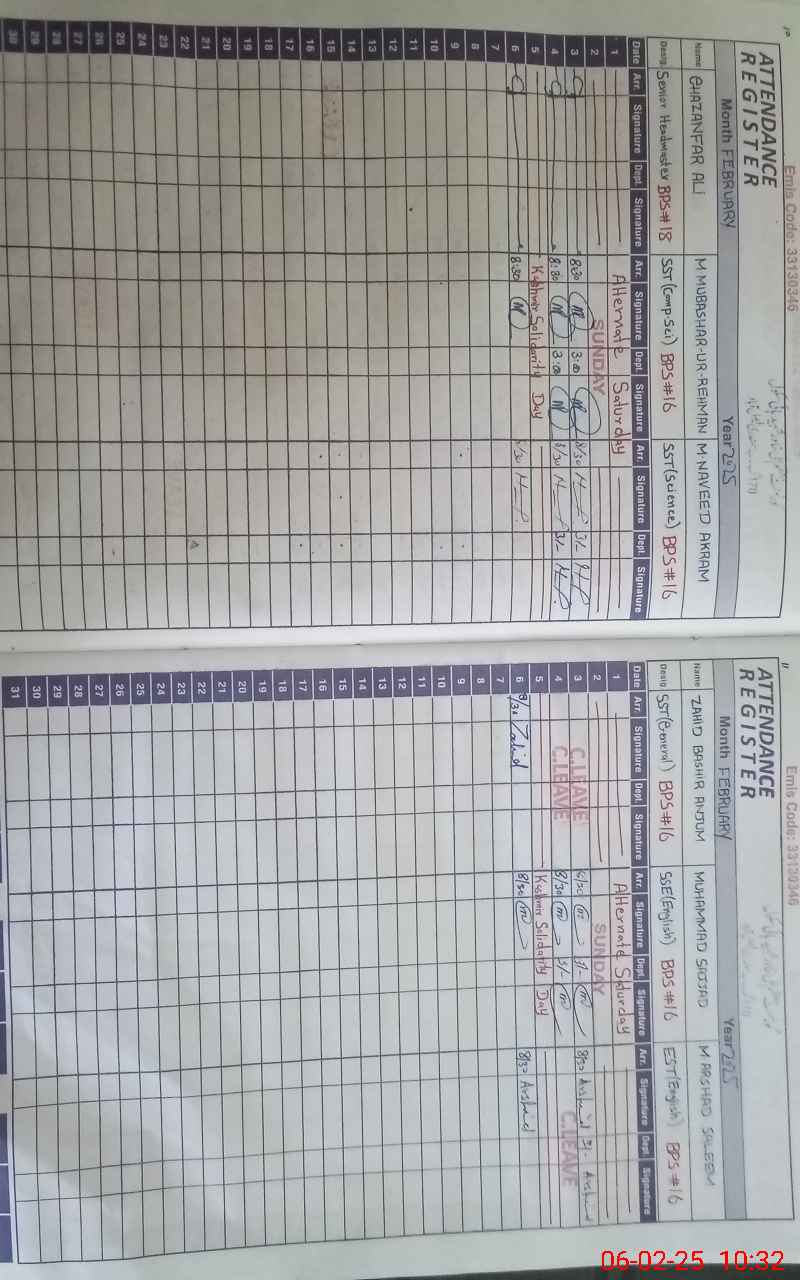 Emis Code: 33130346
ATTENDANCE
REGISTER
Month FEBRUARY Year 2025
Name GHAZANFAR ALI M MUBASHAR-UR-REHMAN M.NAVEED AKRAM
Desig. Senior Headmaster BPS#18 SST(Comp-Sci) BPS#16 SST(Science) BPS#16
Date Arr. Signature Dept. Signature Arr. Signature Dept. Signature Arr. Signature Dept. Signature
1 Alternate Saturday
2 SUNDAY
3 8:30 3:00 8/30 3/-
4 8:30 3:00 8/30 3/-
5 Kashmir Solidarity Day
6 8:30 8/30
7
8
9
10
11
12
13
14
15
16
17
18
19
20
21
22
23
24
25
26
27
28
29
30
11
Emis Code: 33130346
ATTENDANCE
REGISTER
Month FEBRUARY Year 2025
Name ZAHID BASHIR ANJUM MUHAMMAD SAJJAD M ARSHAD SALEEM
Desig. SST(General) BPS#16 SSE(English) BPS#16 EST(English) BPS#16
Date Arr. Signature Dept. Signature Arr. Signature Dept. Signature Arr. Signature Dept. Signature
1 Alternate Saturday
2 SUNDAY
3 C.LEAVE 8/30 3/- 8/30 Arshad 3/- Arshad
4 C.LEAVE 8/30 3/- C.LEAVE
5 Kashmir Solidarity Day
6 8/30 Zahid 8/30 8/30 Arshad
7
8
9
10
11
12
13
14
15
16
17
18
19
20
21
22
23
24
25
26
27
28
29
30
31
06-02-25 10:32